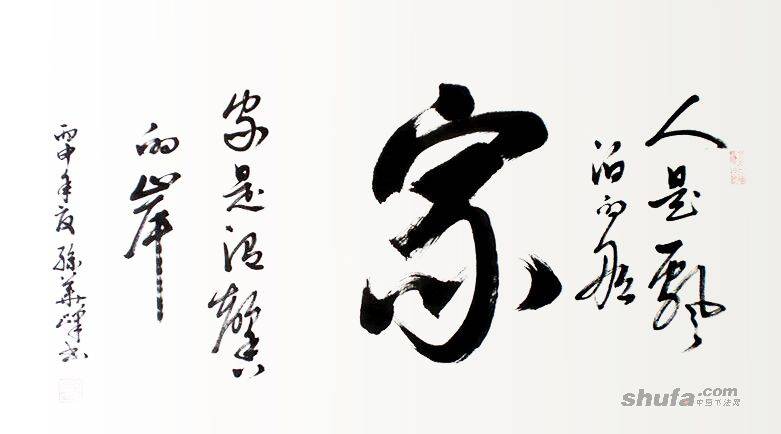 人是飄
泊的船
家
家是温馨
的岸
丙申年夏孫華書
shufa.com
中国书法网